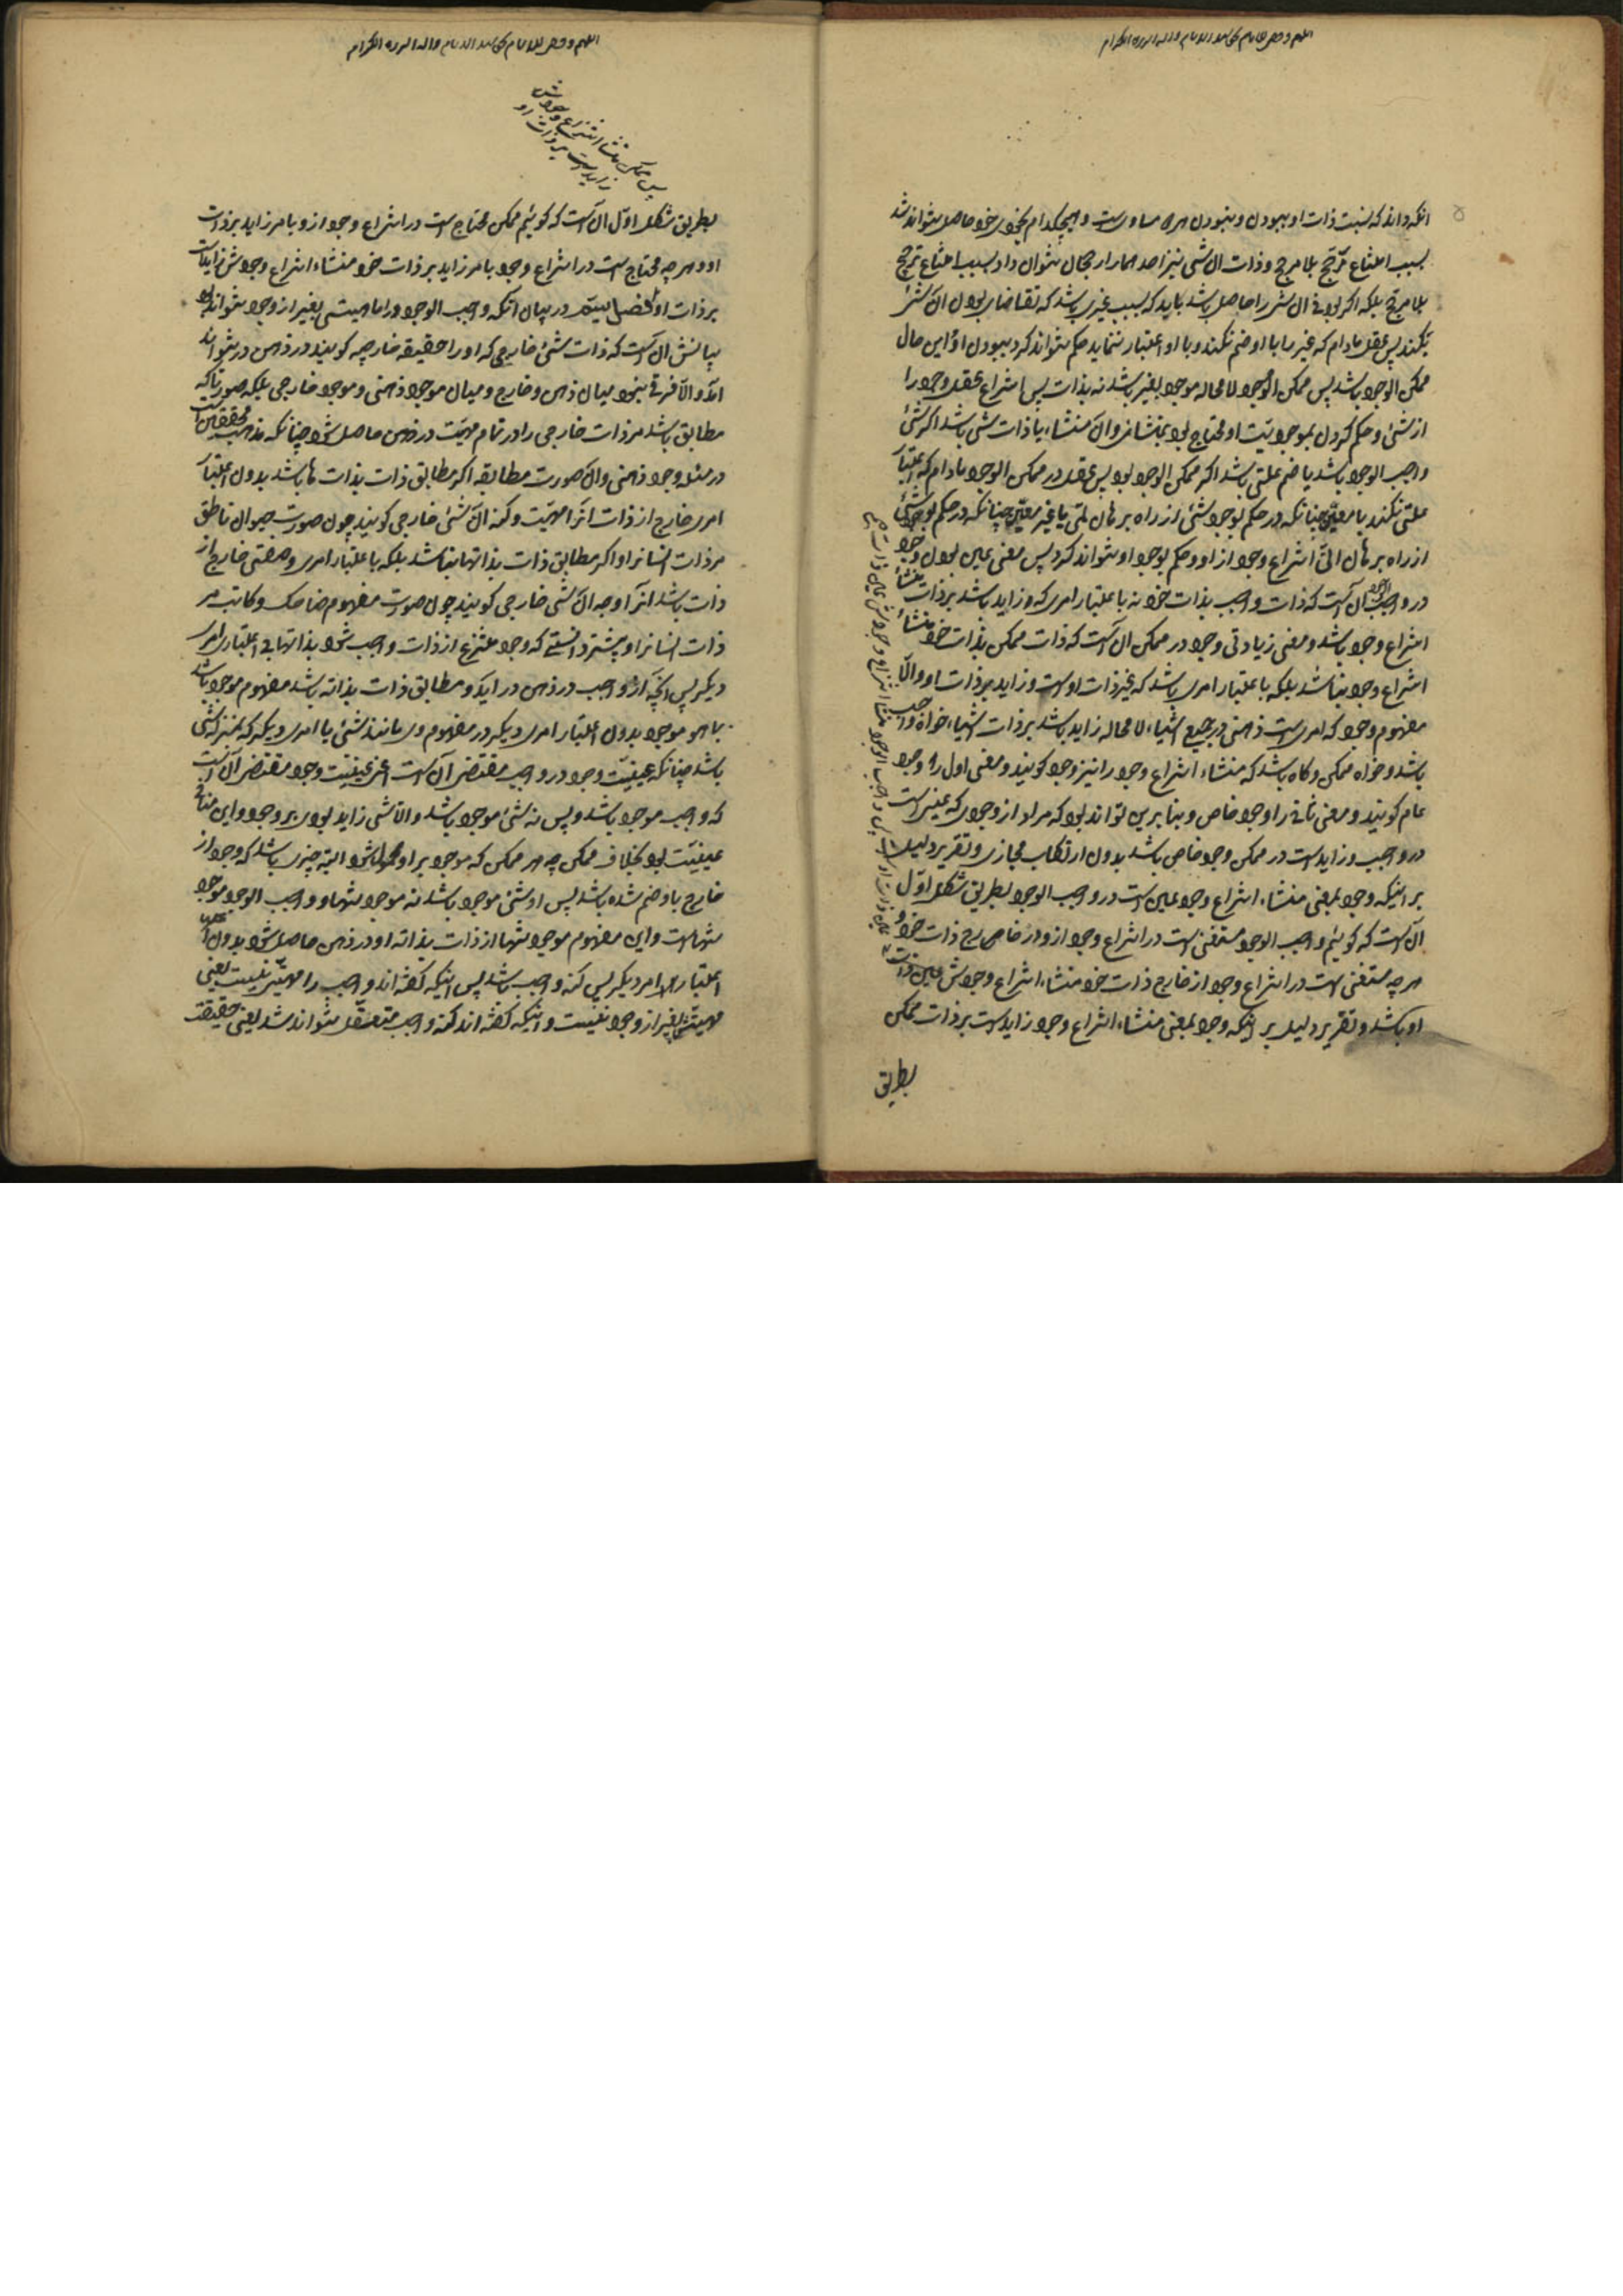 آنکه داند که نسبت ذات او ببودن و نبودن هر دو مساویست و هیچکدام بخودی خود حاصل نتواند شد
بسبب امتناع ترجح بلا مرجح و ذات آن شی نیز احدهما را رجحان نتواند داد بسبب امتناع ترجیح
بلا مرجح بلکه اگر بودنی آن شی را حاصل باشد باید که بسبب غیری باشد که تقاضای بودن آن شئ
بکند پس عقل مادام که غیر را با او ضم نکند و با او اعتبار ننماید حکم نتواند کرد ببودن او و این حال
ممکن الوجود باشد پس ممکن الوجود لا محاله موجود بغیر باشد نه بذات پس انتزاع عقل وجود را
از شئ و حکم کردن بموجودیت او محتاج بود بمنشائی و آن منشاء یا ذات شی باشد اگر شئ
واجب الوجود باشد یا ضم علتی باشد اگر ممکن الوجود بود پس عقل در ممکن الوجود مادام که اعتبار
علتی نکند یا معین چنانکه در حکم بوجود شئ از راه برهان لمی یا غیر معین چنانکه در حکم بوجود شئ
از راه برهان انی انتزاع وجود از او و حکم بوجود او نتواند کرد پس معنی عین بودن وجود
در واجب الوجود آن است که ذات واجب بذات خود نه با اعتبار امری که زاید باشد بر ذات منشاء
انتزاع وجود باشد و معنی زیادتی وجود در ممکن آن است که ذات ممکن بذات خود منشاء
انتزاع وجود نباشد بلکه با اعتبار امری باشد که غیر ذات اوست و زاید بر ذات او و الا
مفهوم وجود که امریست ذهنی در جمیع اشیاء لا محاله زاید باشد بر ذات اشیاء خواه واجب
باشد و خواه ممکن و گاه باشد که منشاء انتزاع وجود را نیز وجود گویند و معنی اول را وجود
عام گویند و معنی ثانی را وجود خاص و بنابرین تواند بود که مراد از وجودی که عین است
در واجب و زاید است در ممکن وجود خاص باشد بدون ارتکاب مجازی و تقریر دلیل
بر اینکه وجود بمعنی منشاء انتزاع وجود عین است در واجب الوجود بطریق شکل اول
آن است که گوئیم واجب الوجود مستغنی است در انتزاع وجود ازو از خارج ذات خود و
هر چه مستغنی است در انتزاع وجود از خارج ذات خود منشاء انتزاع وجودش عین ذات
او باشد و تقریر دلیل بر اینکه وجود بمعنی منشاء انتزاع وجود زاید است بر ذات ممکن
بطریق
پس واجب الوجود منشاء انتزاع وجودش عین ذات
پس ممکن منشاء انتزاع وجودش
زاید است بر ذات او
بطریق شکل اول آن است که گوئیم ممکن محتاج است در انتزاع وجود ازو بامر زاید بر ذات
او و هر چه محتاج است در انتزاع وجود بامر زاید بر ذات خود منشاء انتزاع وجودش زایدست
بر ذات او فصل در بیان آنکه واجب الوجود را ماهیتی بغیر از وجود نتواند بود
بیانش آن است که ذات شئ خارجی که او را حقیقة خارجیه گویند در ذهن در نتواند
آمد و الا فرقی نبود میان ذهن و خارج و میان موجود ذهنی و موجود خارجی بلکه صورتی که
مطابق باشد مر ذات خارجی را در تمام مهیت در ذهن حاصل شود چنانکه مذهب محققین است
در مسئله وجود ذهنی و آن صورت مطابقه اگر مطابق ذات بذات باشد بدون اعتبار
امری خارج از ذات آنرا مهیت و کنه آن شئ خارجی گویند چون صورت حیوان ناطق
مر ذات انسانرا و اگر مطابق ذات بذاتها نباشد بلکه با اعتبار امری و صفتی خارج از
ذات باشد آنرا وجه آن شی خارجی گویند چون صورت مفهوم ضاحک و کاتب مر
ذات انسانرا و پیشتر دانستی که وجود منتزع از ذات واجب شود بذاتها بی اعتبار امری
دیگر پس آنچه از واجب در ذهن در آید و مطابق ذات بذاته باشد مفهوم موجود باشد
بما هو موجود بدون اعتبار امری دیگر در مفهوم وی مانند شئ یا امری دیگر که بمنزله شئ
باشد چنانکه عینیت وجود در واجب مقتضی آن است اعنی عینیت وجود مقتضی آن است
که واجب موجود باشد و بس نه شئ موجود باشد و الا شی زاید بودی بر وجود و این منافی
عینیت بود بخلاف ممکن چه هر ممکن که موجود بر او محمول شود البته چیزی باشد که وجود از
خارج باو ضم شده باشد پس او شئ موجود باشد نه موجود تنها و واجب الوجود موجود
تنهاست و این مفهوم موجود تنها از ذات بذاته او در ذهن حاصل شود بدون
اعتبار امر دیگر پس کنه واجب باشد پس اینکه گفته اند واجب را مهیتی نیست یعنی
مهیتی بغیر از وجود نیست و اینکه گفته اند کنه واجب متعقل نتواند شد یعنی حقیقت